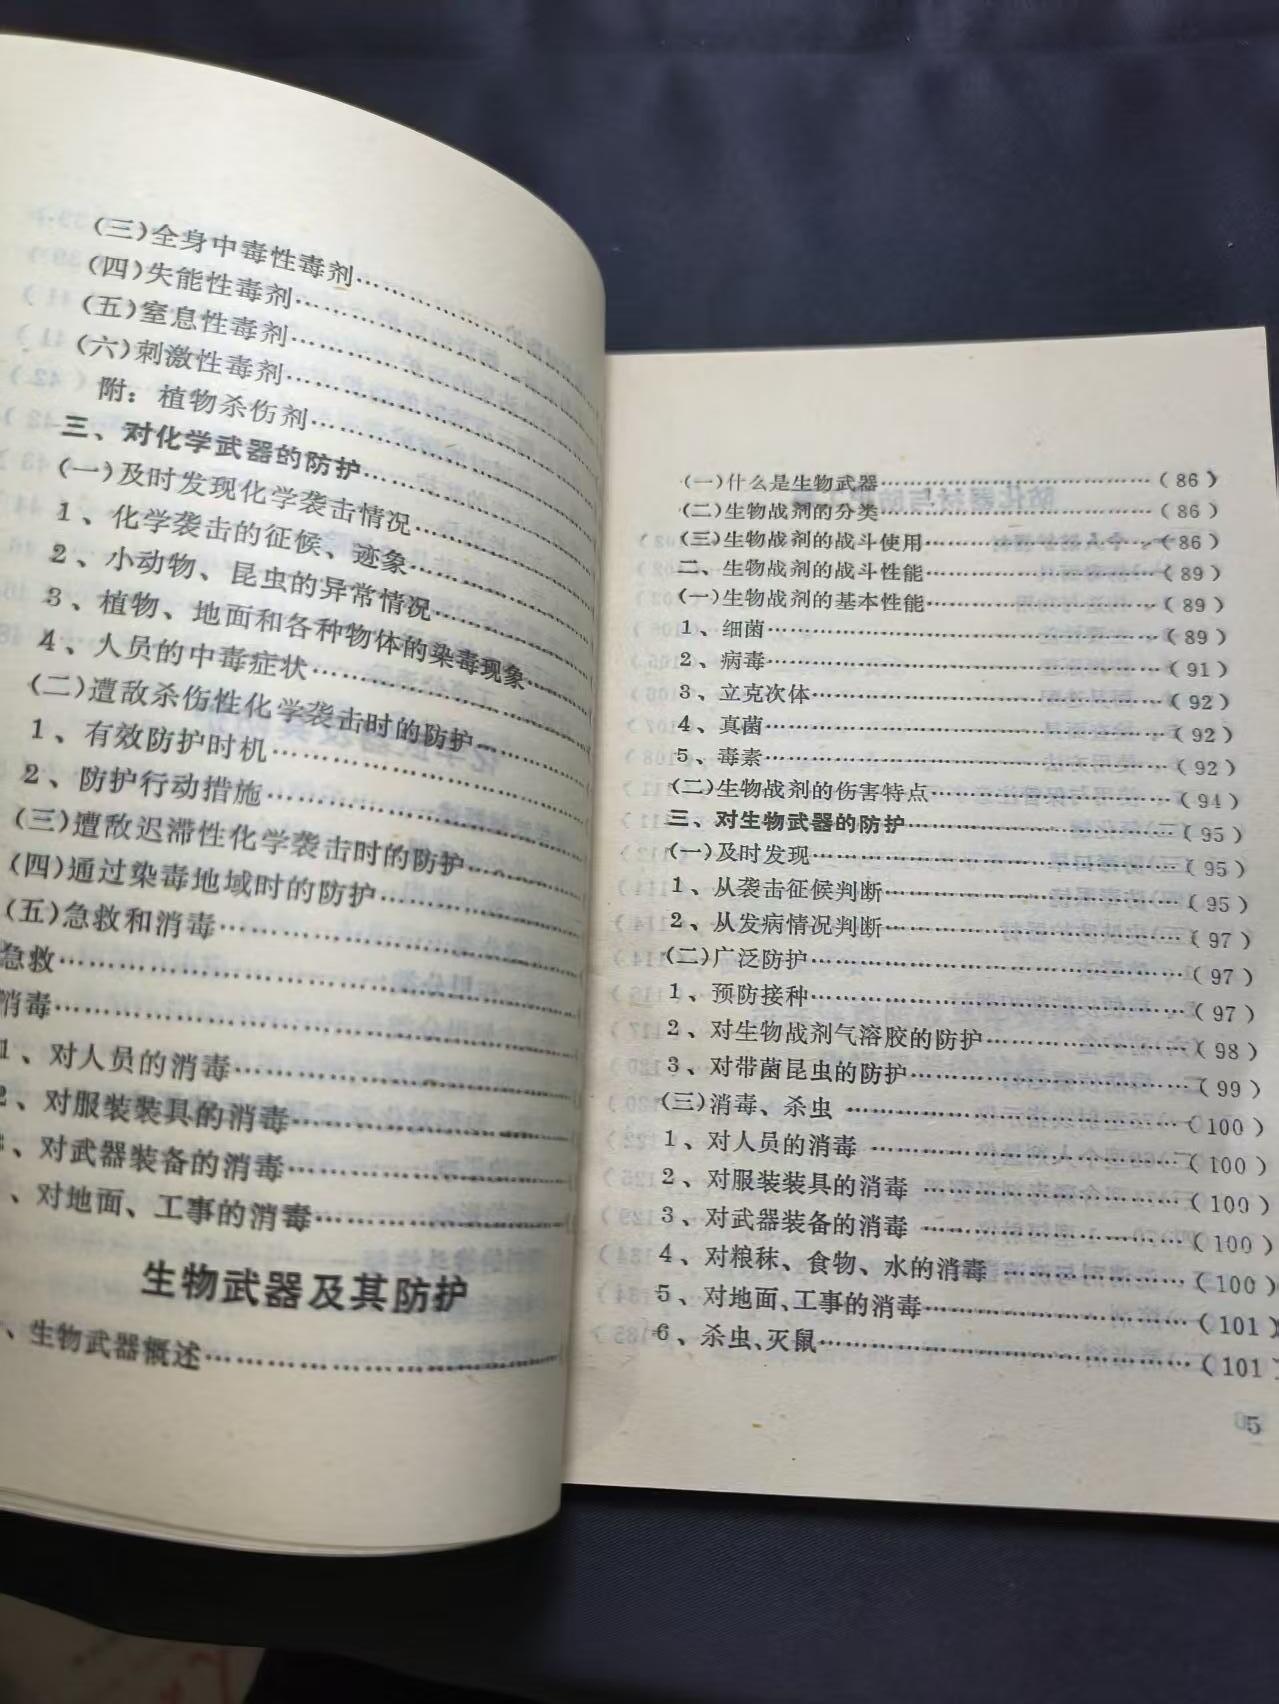 (三)全身中毒性毒剂…………………
(四)失能性毒剂…………………
(五)窒息性毒剂…………………
(六)刺激性毒剂…………………
附：植物杀伤剂…………………
三、对化学武器的防护…………………
(一)及时发现化学袭击情况…………………
1、化学袭击的征候、迹象…………………
2、小动物、昆虫的异常情况…………………
3、植物、地面和各种物体的染毒现象…………
4、人员的中毒症状…………………
(二)遭敌杀伤性化学袭击时的防护…………
1、有效防护时机…………………
2、防护行动措施…………………
(三)遭敌迟滞性化学袭击时的防护…………
(四)通过染毒地域时的防护…………………
(五)急救和消毒…………………
急救…………………
消毒…………………
1、对人员的消毒…………………
2、对服装装具的消毒…………………
、对武器装备的消毒…………………
、对地面、工事的消毒…………………
生物武器及其防护
、生物武器概述…………………
(一)什么是生物武器…………………(86)
(二)生物战剂的分类…………………(86)
(三)生物战剂的战斗使用…………………(86)
二、生物战剂的战斗性能…………………(89)
(一)生物战剂的基本性能…………………(89)
1、细菌…………………(89)
2、病毒…………………(91)
3、立克次体…………………(92)
4、真菌…………………(92)
5、毒素…………………(92)
(二)生物战剂的伤害特点…………………(94)
三、对生物武器的防护…………………(95)
(一)及时发现…………………(95)
1、从袭击征候判断…………………(95)
2、从发病情况判断…………………(97)
(二)广泛防护…………………(97)
1、预防接种…………………(97)
2、对生物战剂气溶胶的防护…………………(98)
3、对带菌昆虫的防护…………………(99)
(三)消毒、杀虫…………………(100)
1、对人员的消毒…………………(100)
2、对服装装具的消毒…………………(100)
3、对武器装备的消毒…………………(100)
4、对粮秣、食物、水的消毒…………………(100)
5、对地面、工事的消毒…………………(101)
6、杀虫、灭鼠…………………(101)
5